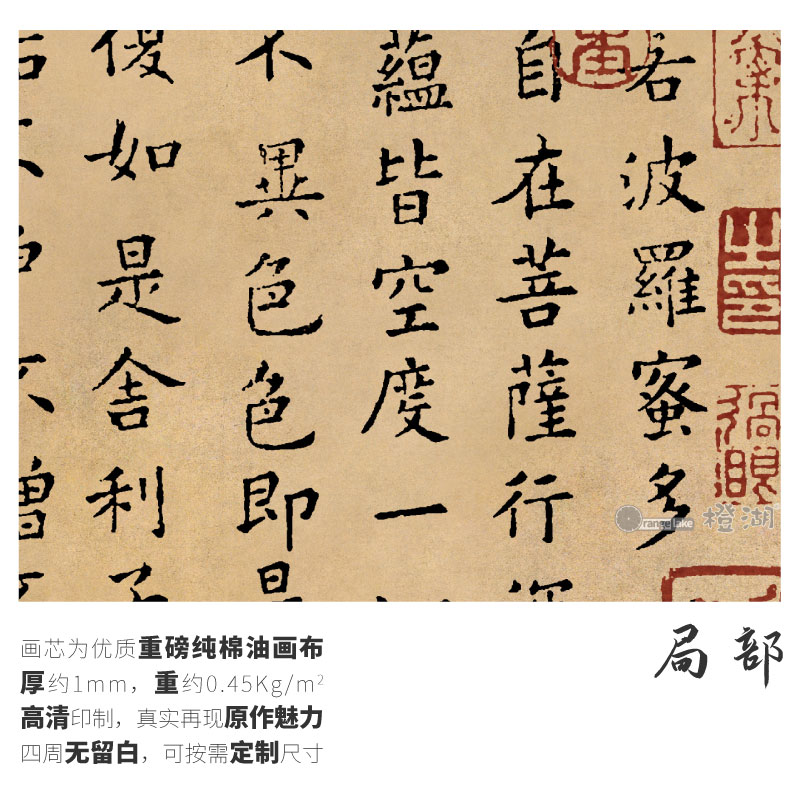 若波羅蜜多
自在菩薩行深
蘊皆空度一
不異色色即是
復如是舍利子
不
不增不
Orange lake 橙湖
局部
画芯为优质重磅纯棉油画布
厚约1mm，重约0.45Kg/m²
高清印制，真实再现原作魅力
四周无留白，可按需定制尺寸